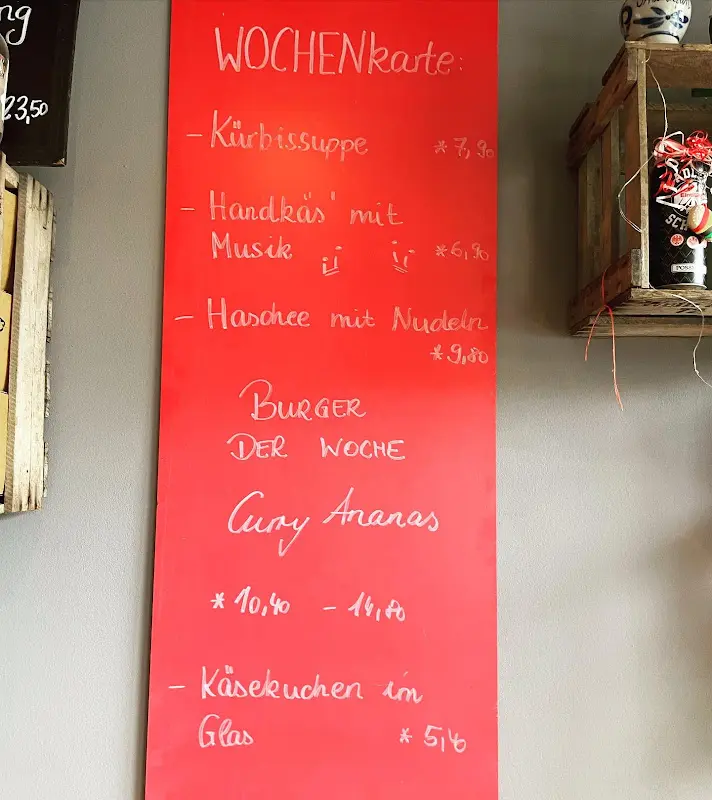 ng
23,50
WOCHENkarte:
- Kürbissuppe *7,90
- Handkäs' mit
Musik *6,90
- Haschee mit Nudeln
*9,80
BURGER
DER WOCHE
Curry Ananas
*10,40 - 14,80
- Käsekuchen im
Glas *5,40